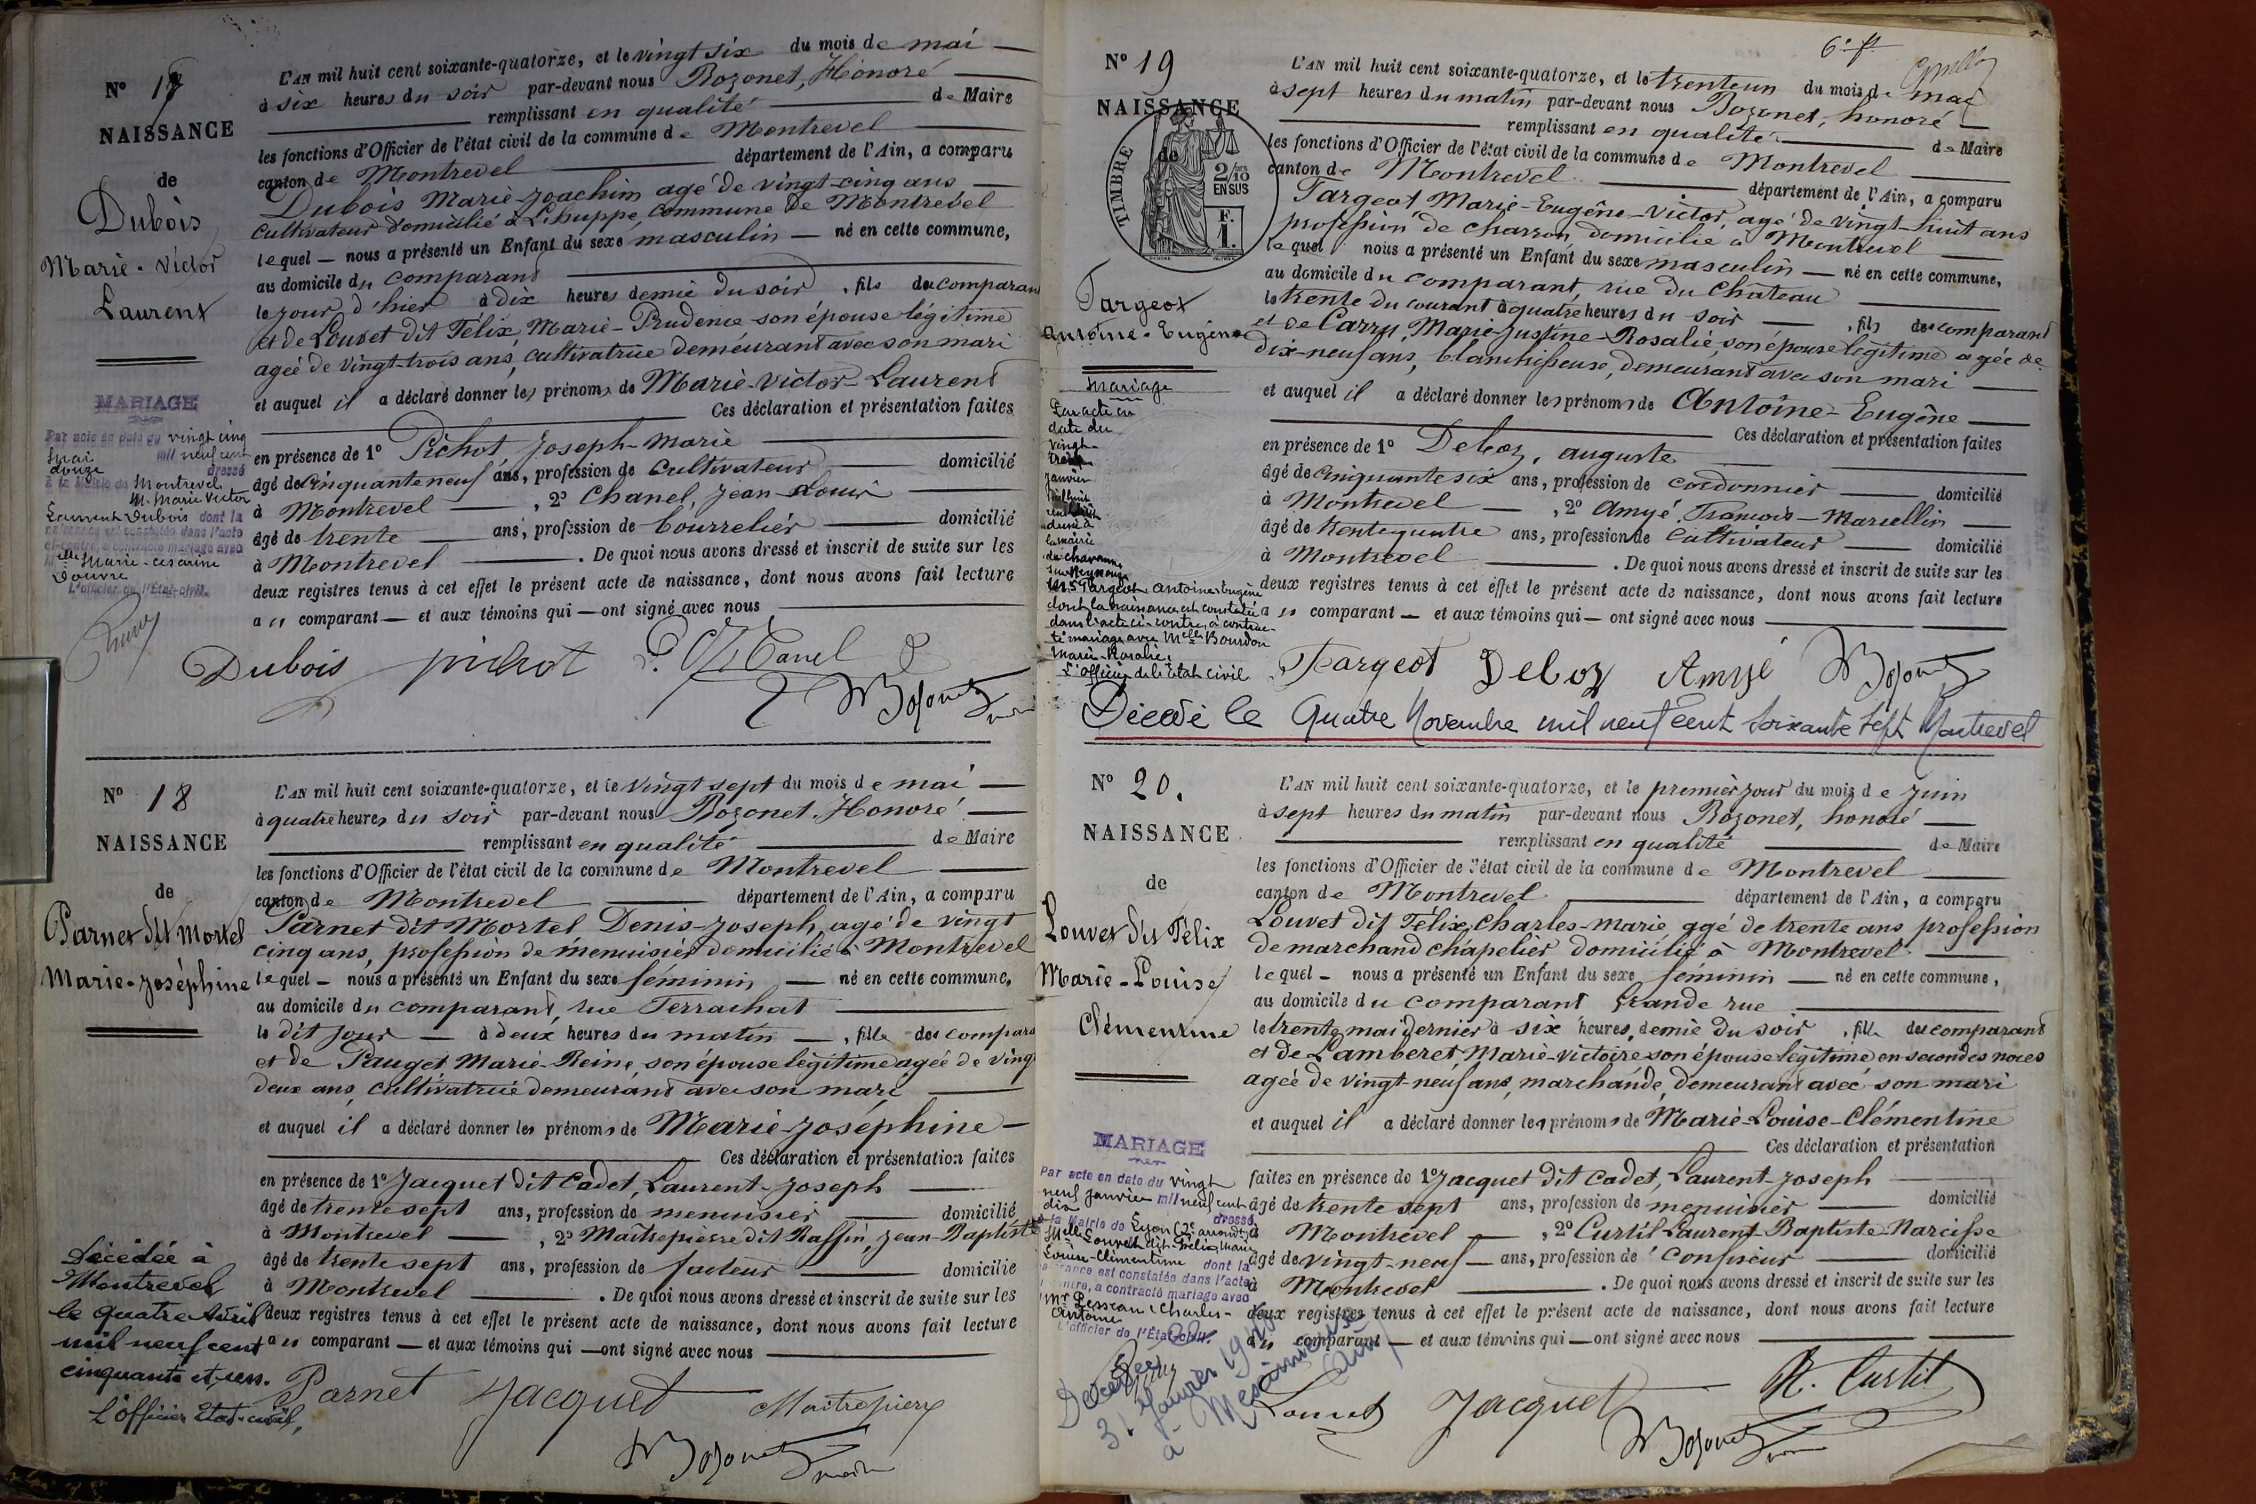 Nº 17
NAISSANCE
de
Dubois
Marie-Victor
Laurent
L'AN mil huit cent soixante-quatorze, et le vingt six du mois de mai
à six heures du soir par-devant nous Bozonet, Honoré
remplissant en qualité de Maire
les fonctions d'Officier de l'état civil de la commune de Montrevel
canton de Montrevel département de l'Ain, a comparu
Dubois Marie-Joachim agé de vingt-cinq ans
cultivateur domicilié à L'huppe, commune de Montrevel
lequel nous a présenté un Enfant du sexe masculin né en cette commune,
au domicile du comparant
le jour d'hier à dix heures demie du soir, fils du comparant
et de Louvet dit Félix, Marie-Prudence son épouse légitime
agée de vingt-trois ans, cultivatrice demeurant avec son mari
et auquel il a déclaré donner les prénoms de Marie-Victor-Laurent
Ces déclaration et présentation faites
en présence de 1º Pichot, Joseph-Marie
âgé de cinquante neuf ans, profession de cultivateur domicilié
à Montrevel, 2º Chanel, Jean-Louis
âgé de trente ans, profession de bourrelier domicilié
à Montrevel. De quoi nous avons dressé et inscrit de suite sur les
deux registres tenus à cet effet le présent acte de naissance, dont nous avons fait lecture
au comparant et aux témoins qui ont signé avec nous
MARIAGE
Par acte en date du vingt cinq
mai mil neuf cent
douze dressé
à la Mairie de Montrevel
M. Marie Victor
Laurent Dubois dont la
naissance est constatée dans l'acte
ci-contre, a contracté mariage avec
Mlle Marie-Césarine
Douvre
L'officier de l'État-civil.
Dubois Pichot Chanel
Bozonet
maire
Nº 18
NAISSANCE
de
Parnet dit Mortel
Marie-Joséphine
L'AN mil huit cent soixante-quatorze, et le vingt sept du mois de mai
à quatre heures du soir par-devant nous Bozonet, Honoré
remplissant en qualité de Maire
les fonctions d'Officier de l'état civil de la commune de Montrevel
canton de Montrevel département de l'Ain, a comparu
Parnet dit Mortel Denis-Joseph, agé de vingt
cinq ans, profession de menuisier domicilié à Montrevel
lequel nous a présenté un Enfant du sexe féminin né en cette commune,
au domicile du comparant, rue Terrachat
le dit jour à deux heures du matin, fille du comparant
et de Pauget Marie-Reine, son épouse légitime agée de vingt
deux ans, cultivatrice demeurant avec son mari
et auquel il a déclaré donner les prénoms de Marie-Joséphine
Ces déclaration et présentation faites
en présence de 1º Jacquet dit Cadet, Laurent-Joseph
âgé de trente sept ans, profession de menuisier domicilié
à Montrevel, 2º Maitrepierre dit Raffin, Jean-Baptiste
âgé de trente sept ans, profession de facteur domicilié
à Montrevel. De quoi nous avons dressé et inscrit de suite sur les
deux registres tenus à cet effet le présent acte de naissance, dont nous avons fait lecture
au comparant et aux témoins qui ont signé avec nous
Décédée à
Montrevel
le quatre Avril
mil neuf cent
cinquante et un.
L'officier État-civil,
Parnet Jacquet Maitrepierre
Bozonet
maire
6e ft
Nº 19
NAISSANCE
de
TIMBRE
2/10
EN SUS
F.
1.
Targeot
Antoine-Eugène
L'AN mil huit cent soixante-quatorze, et le trente un du mois de mai
à sept heures du matin par-devant nous Bozonet, honoré
remplissant en qualité de Maire
les fonctions d'Officier de l'état civil de la commune de Montrevel
canton de Montrevel département de l'Ain, a comparu
Targeot Marie-Eugène-Victor, agé de vingt-huit ans
profession de charron domicilié à Montrevel
lequel nous a présenté un Enfant du sexe masculin né en cette commune,
au domicile du comparant, rue du Château
le trente du courant à quatre heures du soir, fils du comparant
et de Carry, Marie-Justine-Rosalie, son épouse légitime agée de
dix-neuf ans, blanchisseuse, demeurant avec son mari
et auquel il a déclaré donner les prénoms de Antoine-Eugène
Ces déclaration et présentation faites
en présence de 1º Deboz, auguste
âgé de cinquante six ans, profession de cordonnier domicilié
à Montrevel, 2º Amyé, François-Marcellin
âgé de trente quatre ans, profession de cultivateur domicilié
à Montrevel. De quoi nous avons dressé et inscrit de suite sur les
deux registres tenus à cet effet le présent acte de naissance, dont nous avons fait lecture
au comparant et aux témoins qui ont signé avec nous
Mariage
Par acte en
date du
vingt-
janvier
la mairie
de chavannes
sur Reyssouze
Mr Targeot Antoine Eugène
dont la naissance est constatée
dans l'acte ci-contre, a contrac-
té mariage avec Melle Bourdon
Marie-Rosalie.
L'officier de l'État Civil
Targeot Deboz Amyé Bozonet
Décédé le Quatre Novembre mil neuf cent soixante sept Montrevel
Nº 20.
NAISSANCE
de
Louvet dit Félix
Marie-Louise
Clémentine
L'AN mil huit cent soixante-quatorze, et le premier jour du mois de juin
à sept heures du matin par-devant nous Bozonet, honoré
remplissant en qualité de Maire
les fonctions d'Officier de l'état civil de la commune de Montrevel
canton de Montrevel département de l'Ain, a comparu
Louvet dit Félix, Charles-Marie, agé de trente ans profession
de marchand chapelier domicilié à Montrevel
lequel nous a présenté un Enfant du sexe féminin né en cette commune,
au domicile du comparant Grande rue
le trente mai dernier à six heures, demie du soir, fille du comparant
et de Lamberet Marie-Victoire son épouse légitime en secondes noces
agée de vingt-neuf ans, marchande, demeurant avec son mari
et auquel il a déclaré donner les prénoms de Marie-Louise-Clémentine
Ces déclaration et présentation
faites en présence de 1º Jacquet dit Cadet, Laurent-Joseph
âgé de trente sept ans, profession de menuisier domicilié
à Montrevel, 2º Curtil Laurent-Baptiste-Narcisse
âgé de vingt-neuf ans, profession de confiseur domicilié
à Montrevel. De quoi nous avons dressé et inscrit de suite sur les
deux registres tenus à cet effet le présent acte de naissance, dont nous avons fait lecture
au comparant et aux témoins qui ont signé avec nous
MARIAGE
Par acte en date du vingt
neuf janvier mil neuf cent
dix dressé
à la Mairie de Lyon (2e arrondt)
Melle Louvet dit Félix, Marie
Louise-Clémentine dont la
naissance est constatée dans l'acte
ci-contre, a contracté mariage avec
Mr Charles-
Antoine
L'officier de l'État-civil.
Décédée
31 Janvier
à
(Ain)
Louvet Jacquet N. Curtil
Bozonet
maire